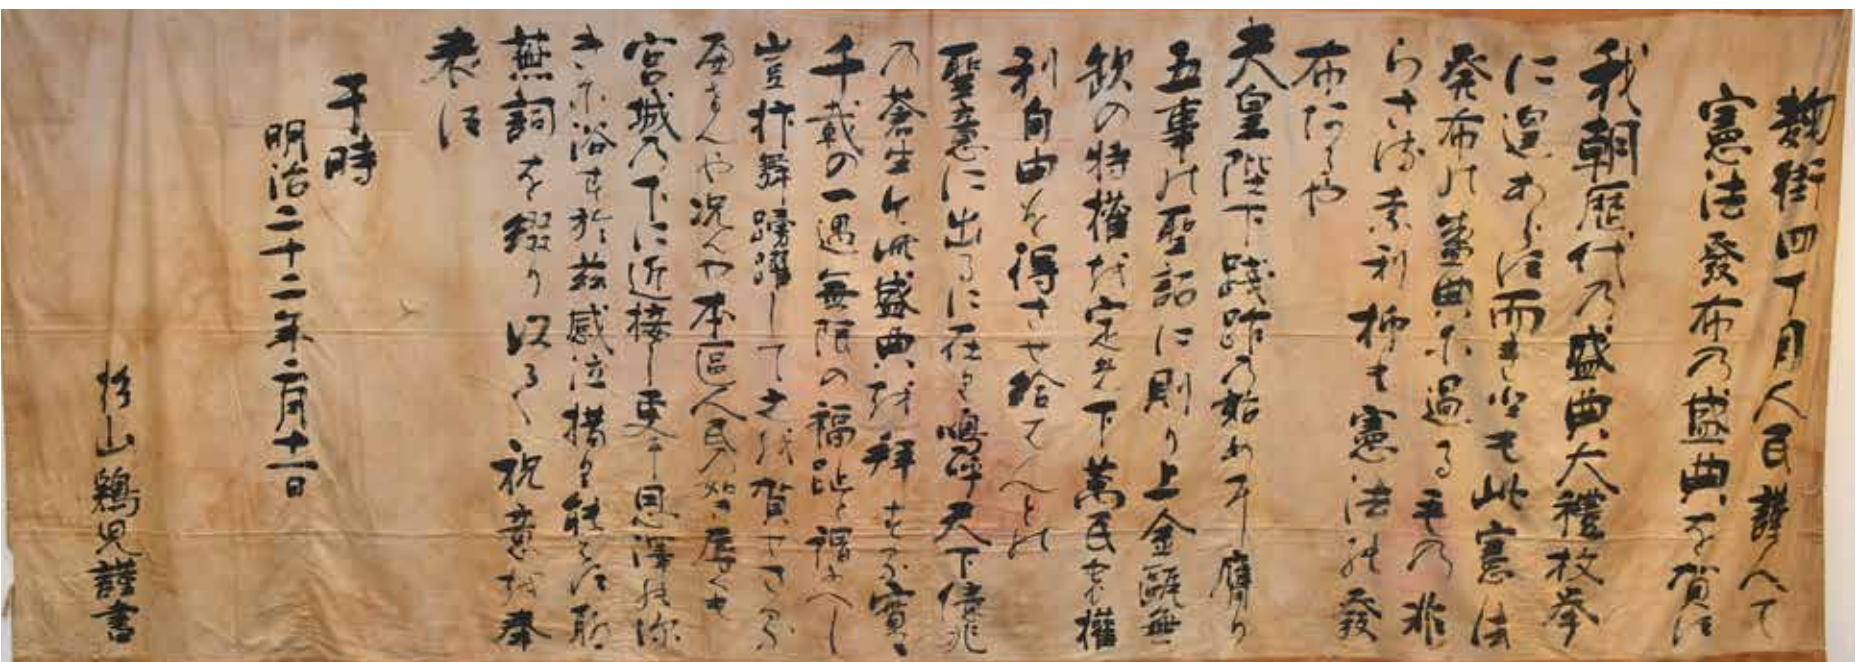 麴街四丁目人民謹んて
憲法發布の盛典を賀す
我朝歴代の盛典大禮枚挙
に遑あらす而も此憲法
発布の盛典に過るもの非
らさるなり抑も憲法の發
布たるや
天皇陛下踐祚の始めに膺り
五事の聖詔に則り上金甌無
缺の特權を定め下萬民を權
利自由を得させ給てんとの
聖意に出るに在り嗚呼天下億兆
の蒼生今此盛典を拝する實に
千載の一遇無限の福祉と謂ふへし
豈抃舞踴躍して之を賀せさる
へけんや况んや本區人民の如き辱も
宮城の下に近接し更に恩澤の深
きに浴す於茲感泣措く能はす聊
蕪詞を綴り以て祝意を奉
表す
于時
明治二十二年二月十一日
杉山鶏児謹書